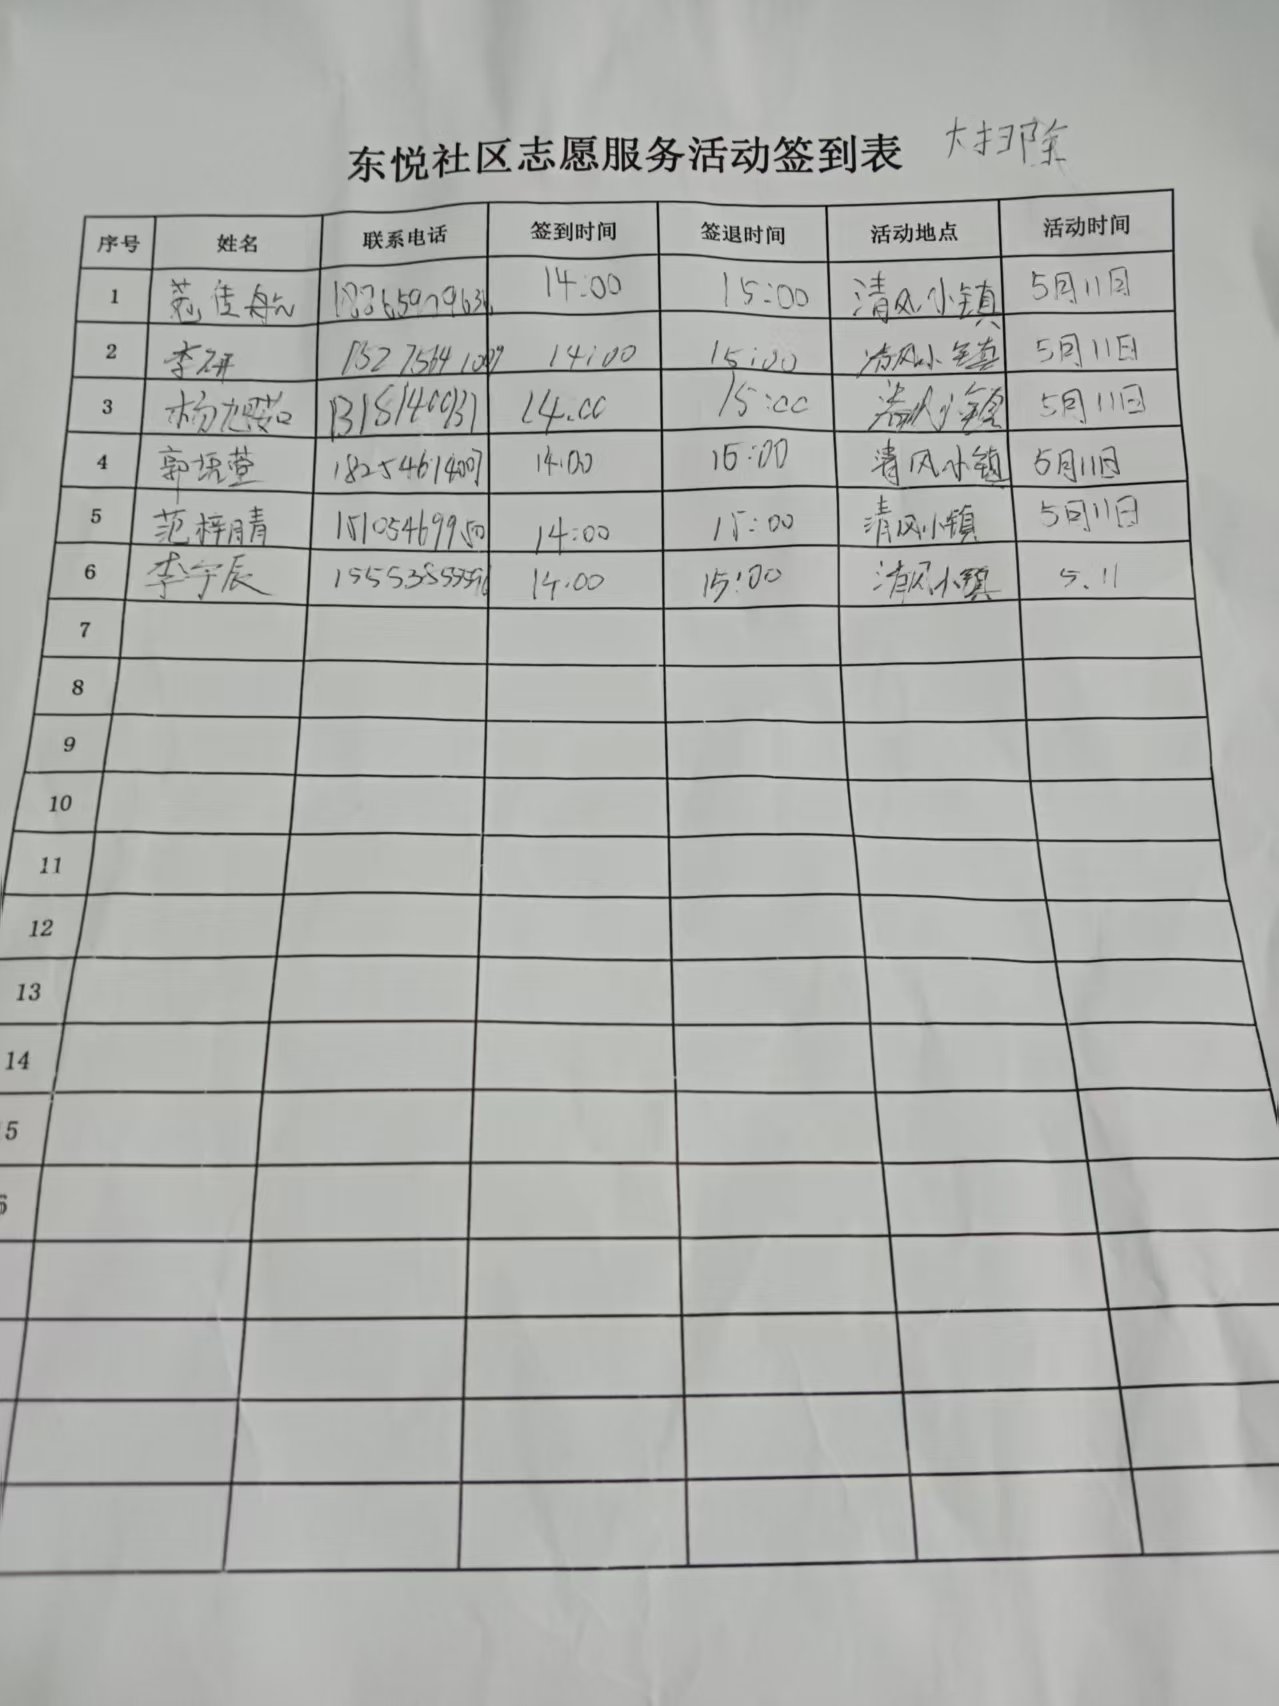 东悦社区志愿服务活动签到表 大扫除
序号 姓名 联系电话 签到时间 签退时间 活动地点 活动时间
1 佳航 14:00 15:00 清风小镇 5月11日
2 李妍 14:00 15:00 清风小镇 5月11日
3 杨 14:00 15:00 清风小镇 5月11日
4 郭 萱 14:00 15:00 清风小镇 5月11日
5 范梓晴 15105469950 14:00 15:00 清风小镇 5月11日
6 李宇辰 14:00 15:00 清风小镇 5.11
7
8
9
10
11
12
13
14
5
6